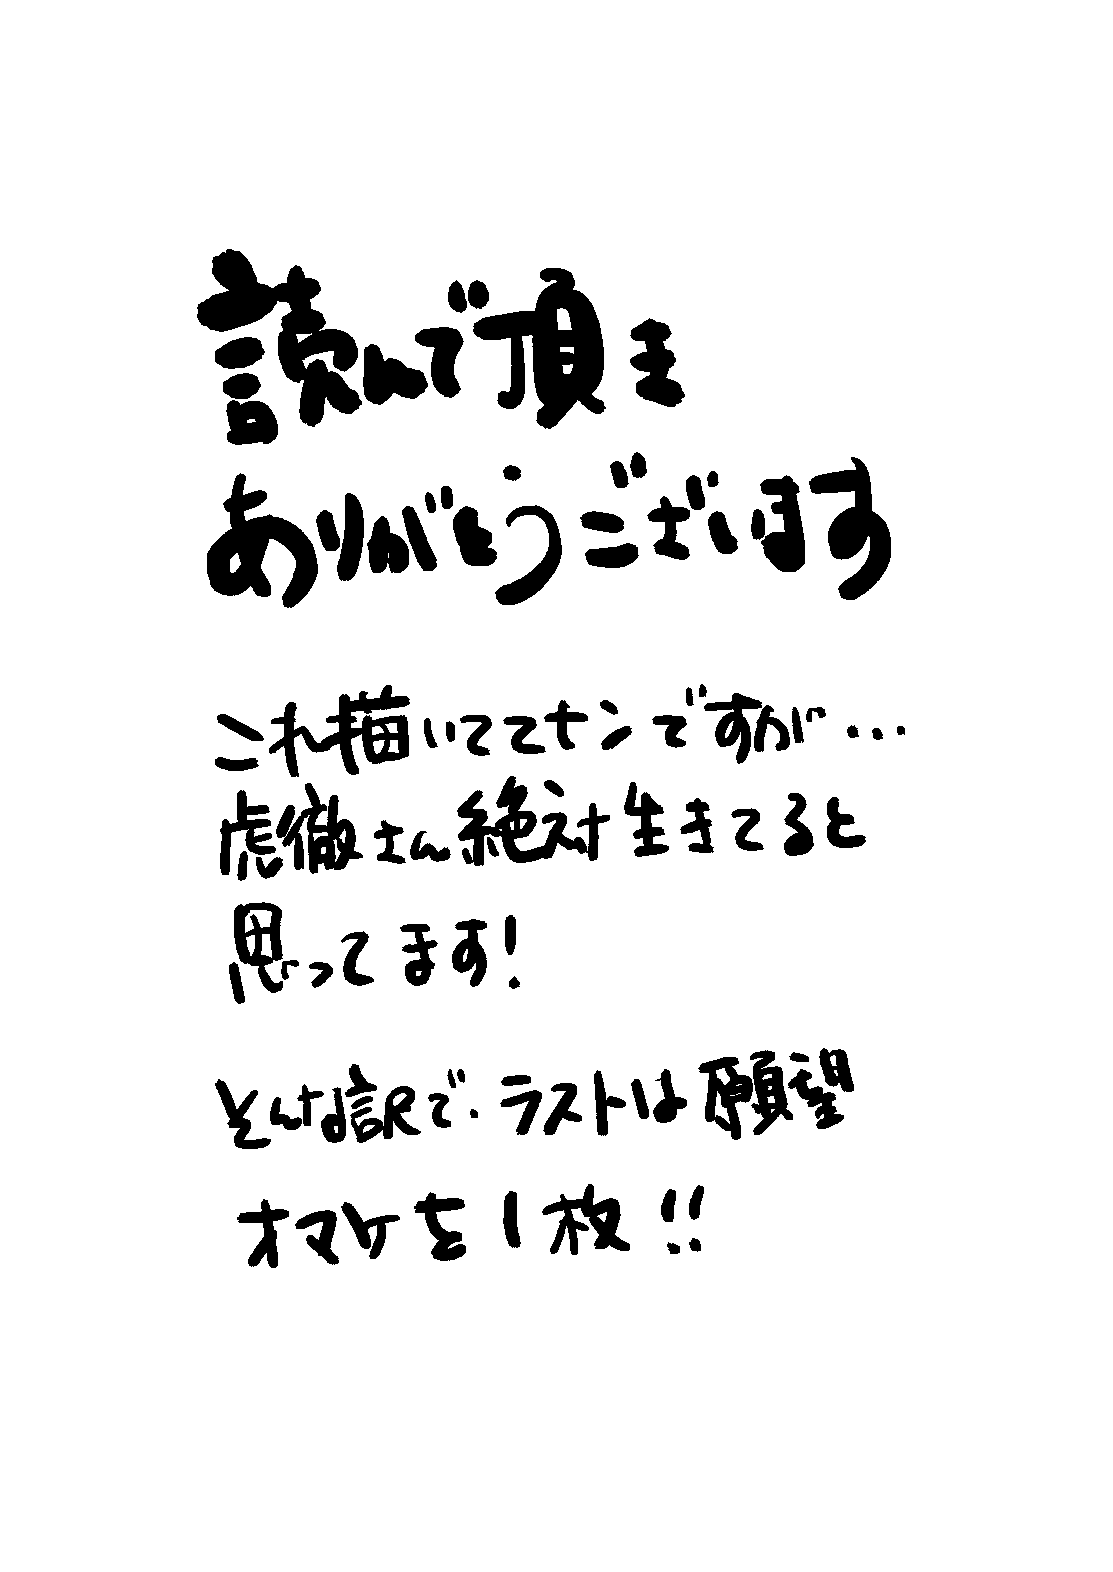 読んで頂き
ありがとうございます
これ描いててナンですが…
虎徹さん絶対生きてると
思ってます!
そんな訳で.ラストは願望
オマケを1枚!!